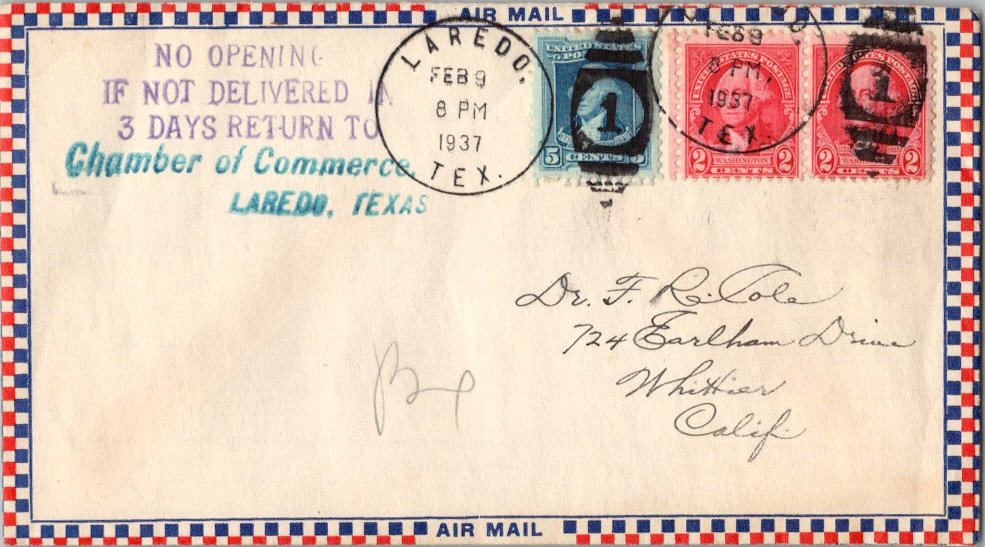 AIR MAIL
NO OPENING
IF NOT DELIVERED IN
3 DAYS RETURN TO
Chamber of Commerce,
LAREDO, TEXAS
LAREDO,
FEB 9
8 PM
1937
TEX.
UNITED STATES
5 CENTS 5
1
FEB 9
8 PM.
1937
TEX.
UNITED STATES POSTAGE
WASHINGTON
2 CENTS 2
2 CENTS 2
1
Dr. F. R. Cole
724 Earlham Drive
Whittier
Calif.
AIR MAIL